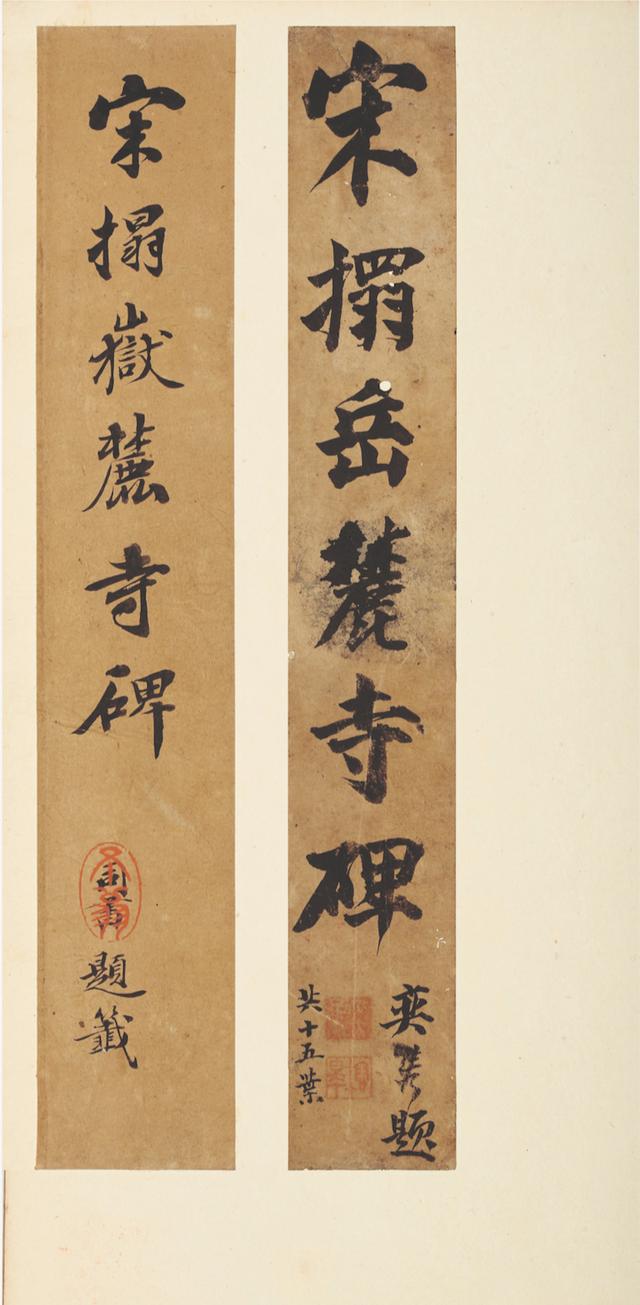 宋搨岳麓寺碑
奕雋題
共十五葉
宋搨嶽麓寺碑
題籤